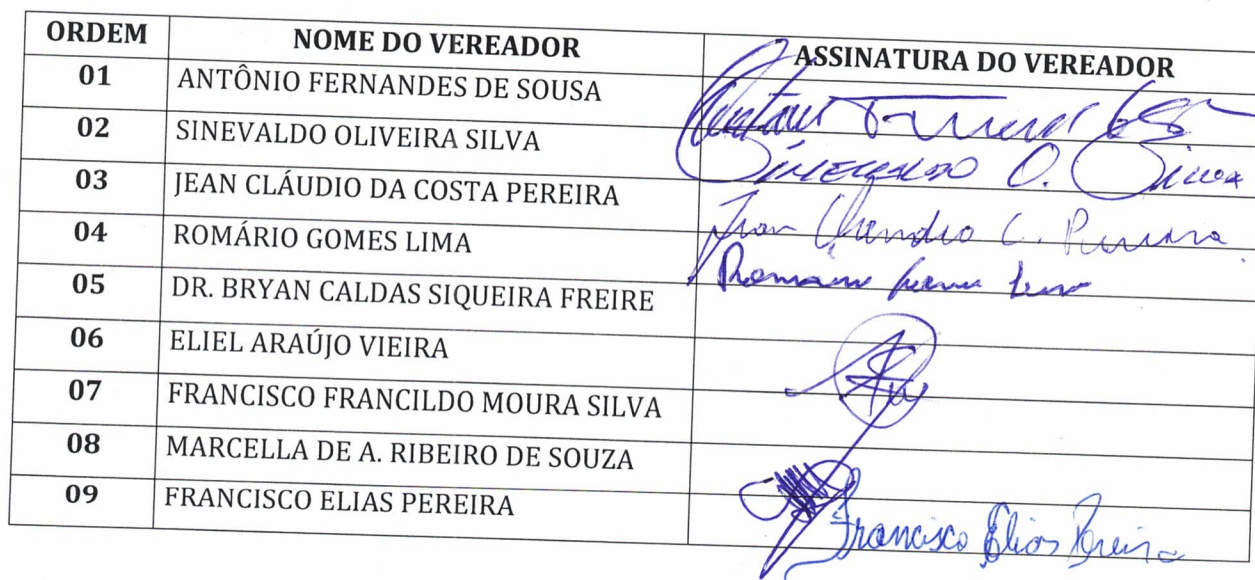 ORDEM NOME DO VEREADOR ASSINATURA DO VEREADOR
01 ANTÔNIO FERNANDES DE SOUSA
02 SINEVALDO OLIVEIRA SILVA Sinevaldo O. Silva
03 JEAN CLÁUDIO DA COSTA PEREIRA
04 ROMÁRIO GOMES LIMA
05 DR. BRYAN CALDAS SIQUEIRA FREIRE
06 ELIEL ARAÚJO VIEIRA
07 FRANCISCO FRANCILDO MOURA SILVA
08 MARCELLA DE A. RIBEIRO DE SOUZA
09 FRANCISCO ELIAS PEREIRA Francisco Elias Pereira